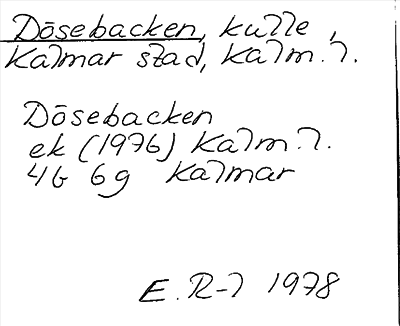 Dösebacken, kulle,
Kalmar stad, Kalm. l.
Dösebacken
ek (1976) Kalm. l.
4G 6g Kalmar
E. R-l 1978